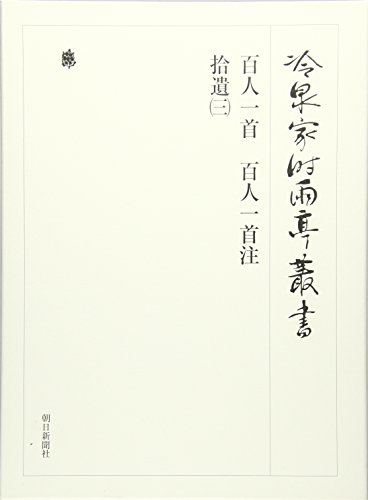 冷泉家時雨亭叢書
百人一首　百人一首注
拾遺(三)
朝日新聞社